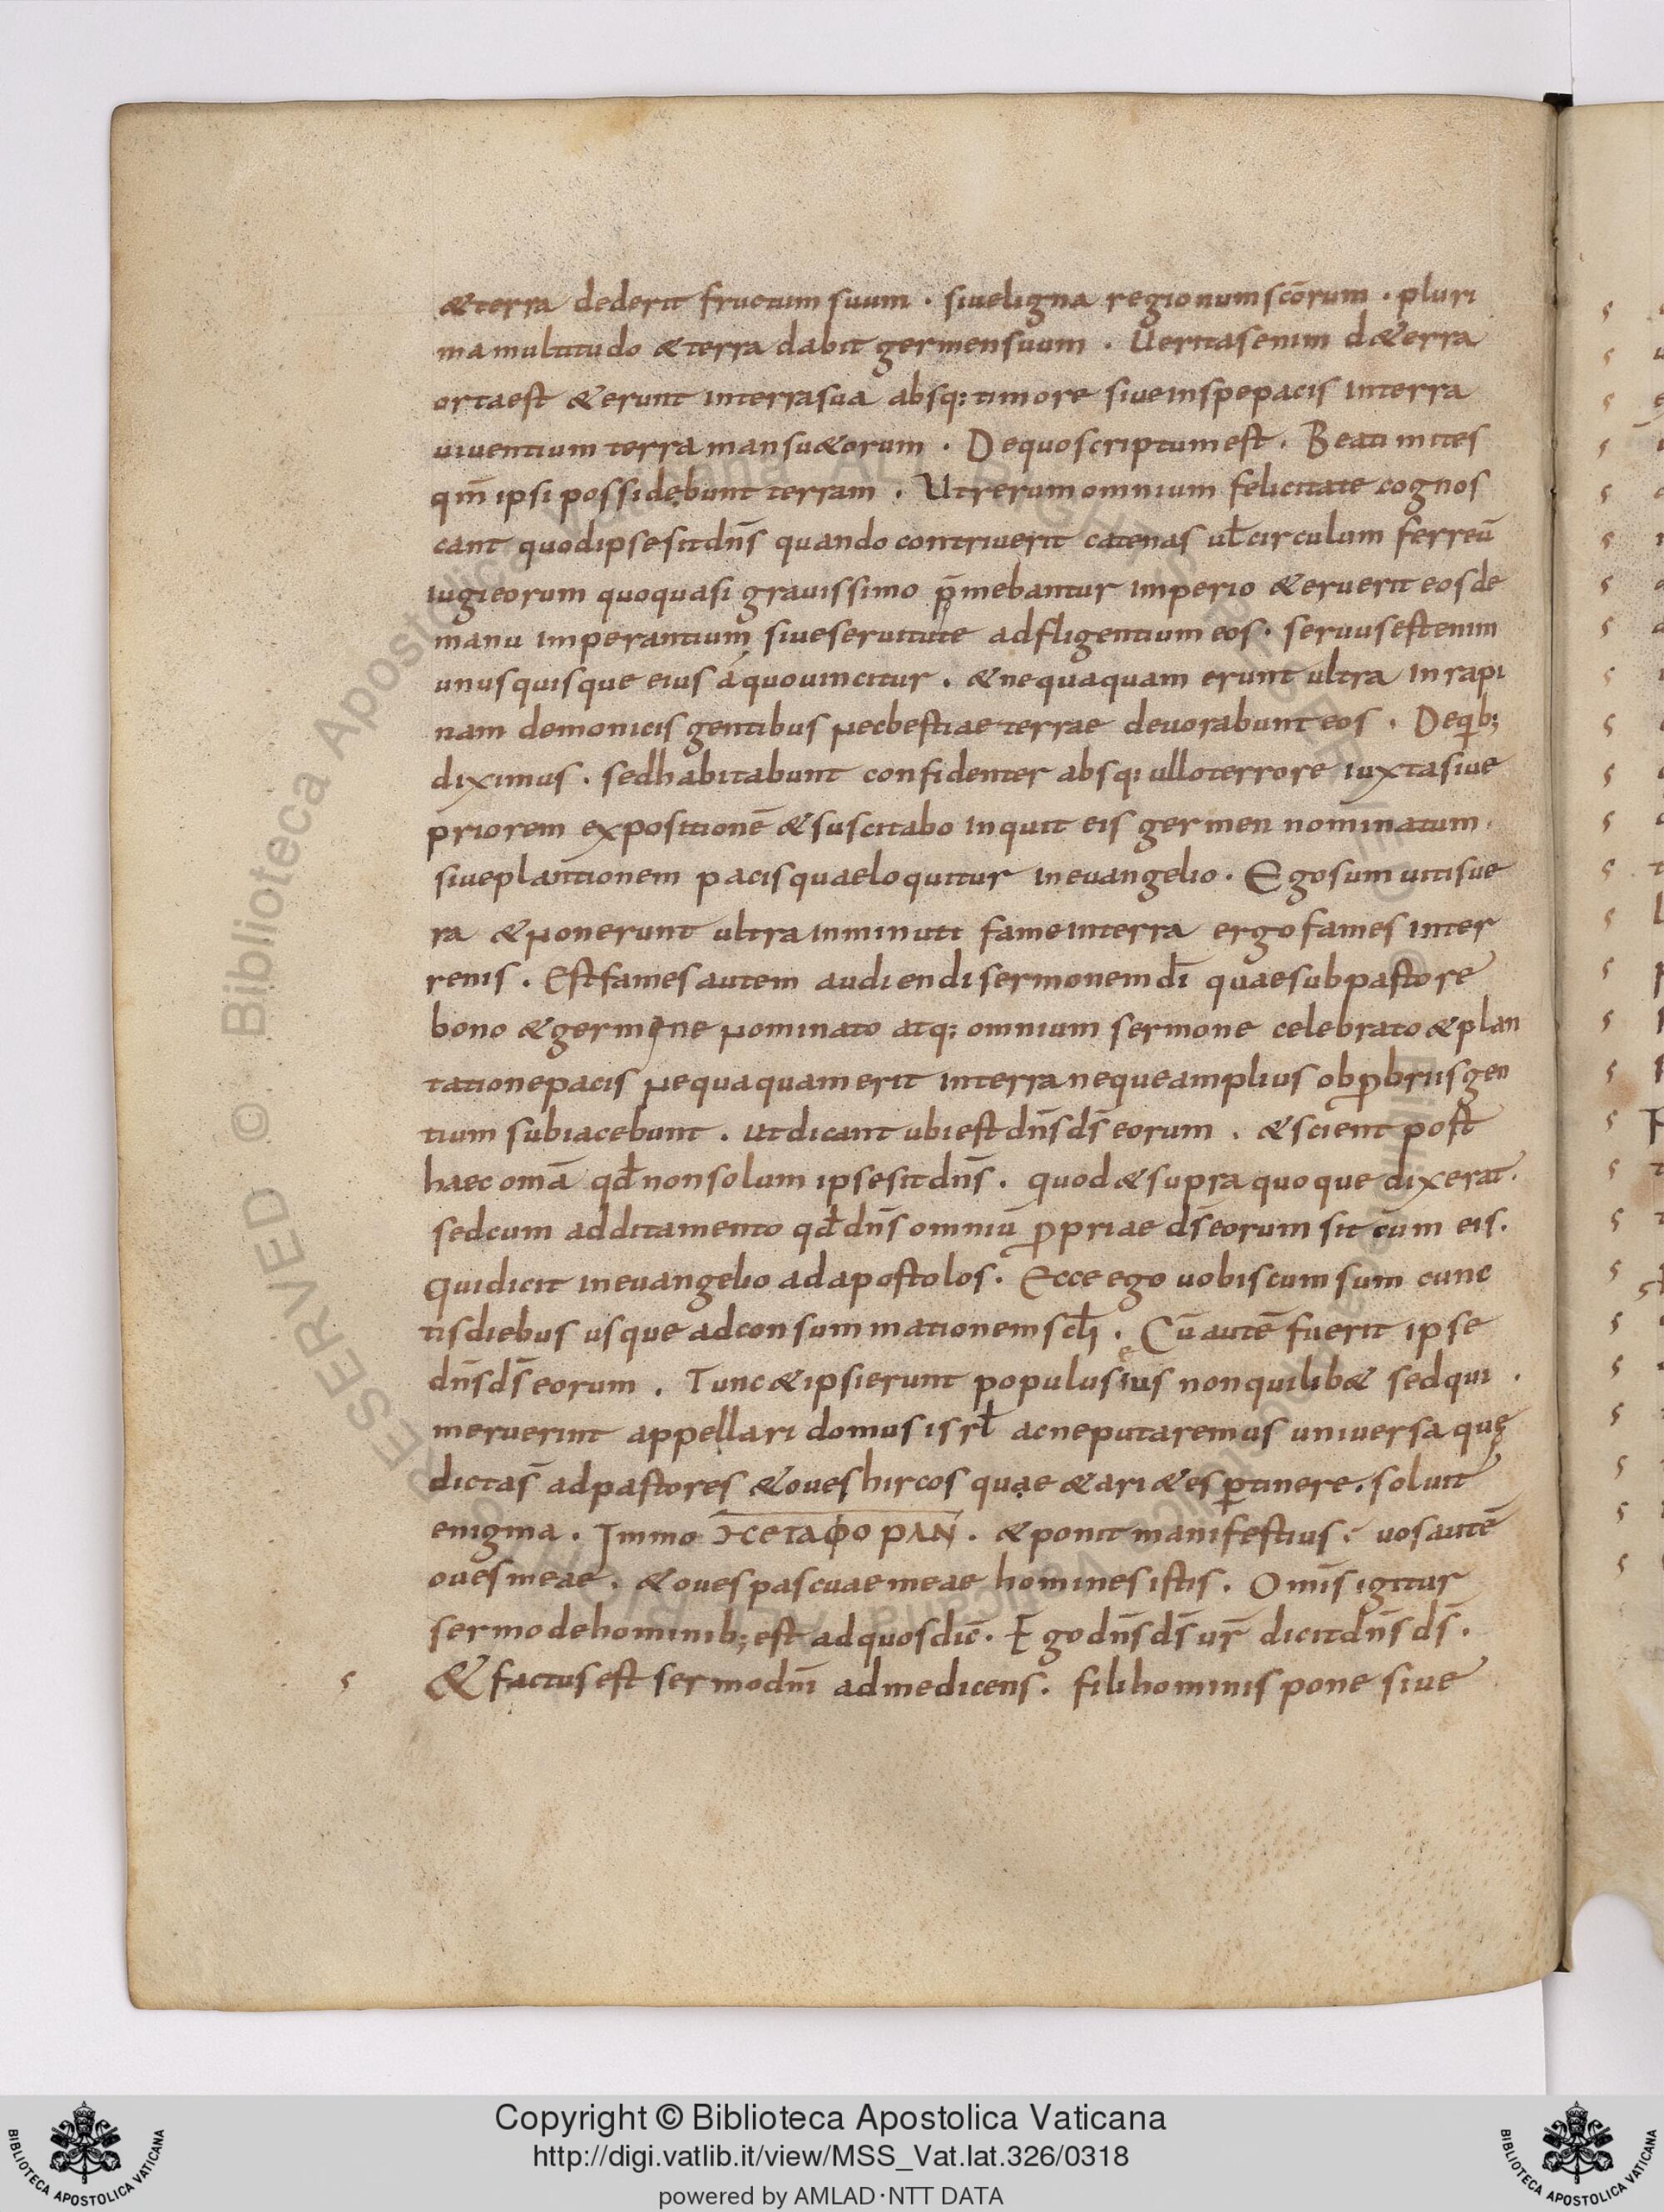 &terra dederit fructum suum · siueligna regionum scōrum · pluri
ma multitudo &terra dabit germen suum · Ueritas enim d&erra
orta est & erunt interra sua absq; timore siue inspepacis interra
uiuentium terra mansu&orum · Dequo scriptum est · Beati mites
qm̄ ipsi possidebunt terram · Ut rerum omnium felicitate cognos
cant quod ipse sit dn̄s quando contriuerit catenas ul̄ circulum ferreū
iugi eorum quo quasi grauissimo p̄mebantur imperio & eruerit eos de
manu imperantium siue seruitute adfligentium eos · seruus est enim
unus quisque eius á quo uincitur · & nequaquam erunt ultra in rapi
nam demonicis gentibus nec bestiae terrae deuorabunt eos · Deqb;
diximus · sed habitabunt confidenter absq; ullo terrore iuxta siue
priorem expositionē & suscitabo inquit eis germen nominatum ·
siue plantionem pacis quae loquitur in euangelio · Ego sum uitis ue
ra & non erunt ultra inminuti fame interra ergo fames inter
renis · Est fames autem audiendi sermonem dī quae sub pastore
bono & germine nominato atq; omnium sermone celebrato & plan
tatione pacis nequaquam erit interra neque amplius obp̄briis gen
tium subiacebunt · ut dicant ubi est dn̄s ds̄ eorum · & scient post
haec omā qd̄ non solum ipse sit dn̄s · quod & supra quoque dixerat ·
sed cum additamento qd̄ dn̄s omniū ꝓpriae ds̄ eorum sit cum eis ·
Qui dicit in euangelio ad apostolos · Ecce ego uobiscum sum cunc
tis diebus usque ad consummationem scl̄i · Cū autē fuerit ipse
dn̄s ds̄ eorum · Tunc & ipsi erunt populus eius non quilib& sed qui ·
meruerint appellari domus isrl̄ ac ne putaremus uniuersa quę
dicta s̄ ad pastores & oues hircos quae & ari&es ꝑtinere · soluit
enigma · Immo ϽϹΕΤΑΦΟΡΑΝ · & ponit manifestius : uos autē
oues meae · & oues pascuae meae homines istis · Omīs igitur
sermo de hominib; est ad quos dic̄ · Ego dn̄s ds̄ ur̄ dicit dn̄s ds̄ ·
s & factus est sermo dnī ad me dicens · fili hominis pone siue
Copyright © Biblioteca Apostolica Vaticana
http://digi.vatlib.it/view/MSS_Vat.lat.326/0318
powered by AMLAD·NTT DATA
BIBLIOTECA APOSTOLICA VATICANA
BIBLIOTECA APOSTOLICA VATICANA